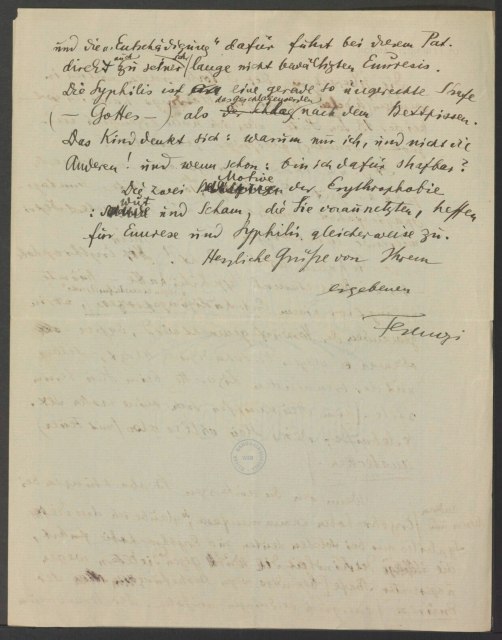 und die „Entschädigung" dafür führt bei diesem Pat.
direkt auch zu seiner (lange nicht bewältigten Enuresis.
Die Syphilis ist eine gerade so ungerechte Strafe
(— Gottes —) als das Geschlagenwerden nach dem Bettpissen.
Das Kind denkt sich: warum nur ich, und nicht die
Anderen! und wenn schon: bin ich dafür strafbar?
Die zwei Motive der Erythrophobie
: Wut und Scham, die Sie voraussetzten, treffen
für Enurese und Syphilis gleicherweise zu.
Herzliche Grüße von Ihrem
ergebenen
Ferenczi